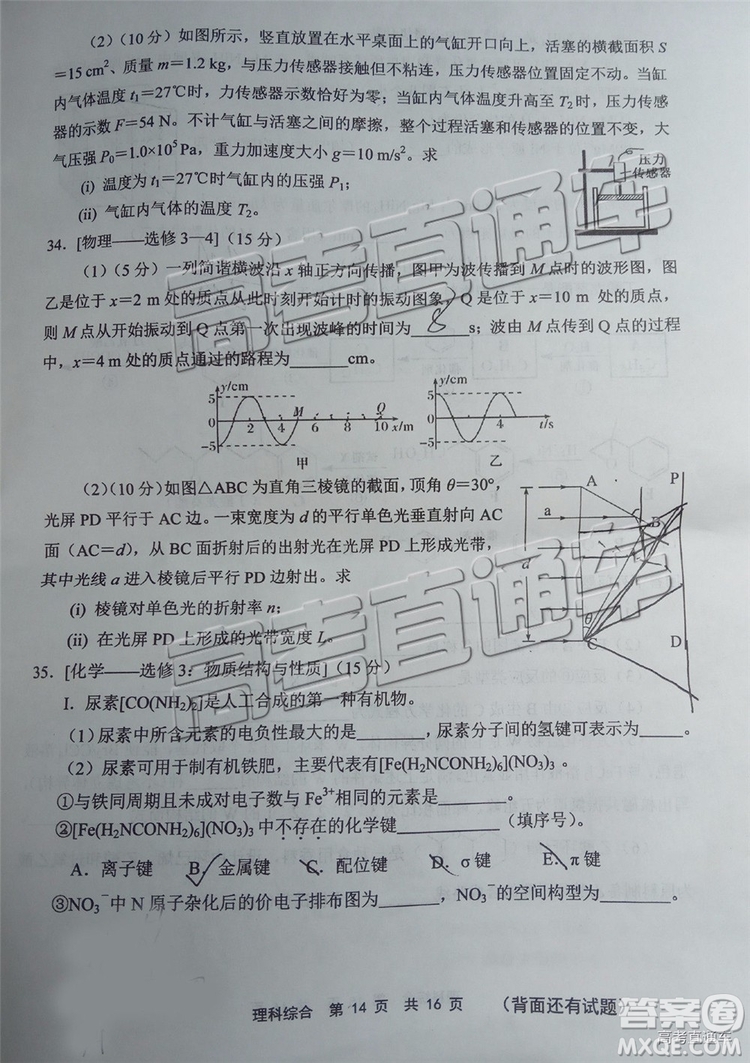 (2)(10 分) 如图所示，竖直放置在水平桌面上的气缸开口向上，活塞的横截面积 S
=15 cm²、质量 m=1.2 kg，与压力传感器接触但不粘连，压力传感器位置固定不动。当缸
内气体温度 t₁=27℃时，力传感器示数恰好为零；当缸内气体温度升高至 T₂时，压力传感
器的示数 F=54 N。不计气缸与活塞之间的摩擦，整个过程活塞和传感器的位置不变，大
气压强 P₀=1.0×10⁵ Pa，重力加速度大小 g=10 m/s²。求
(i) 温度为 t₁=27℃时气缸内的压强 P₁；
(ii) 气缸内气体的温度 T₂。
压力
传感器
34. [物理——选修 3—4] (15 分)
(1)(5 分) 一列简谐横波沿 x 轴正方向传播，图甲为波传播到 M 点时的波形图，图
乙是位于 x=2 m 处的质点从此时刻开始计时的振动图象，Q 是位于 x=10 m 处的质点，
则 M 点从开始振动到 Q 点第一次出现波峰的时间为 8 s；波由 M 点传到 Q 点的过程
中，x=4 m 处的质点通过的路程为______cm。
y/cm
5
-5
2 4 6 8 10 x/m
M Q
甲
y/cm
5
-5
4 t/s
乙
(2)(10 分) 如图△ABC 为直角三棱镜的截面，顶角 θ=30°，
光屏 PD 平行于 AC 边。一束宽度为 d 的平行单色光垂直射向 AC
面 (AC=d)，从 BC 面折射后的出射光在光屏 PD 上形成光带，
其中光线 a 进入棱镜后平行 PD 边射出。求
(i) 棱镜对单色光的折射率 n；
(ii) 在光屏 PD 上形成的光带宽度 L。
A
P
a
B
d
θ
C
D
35. [化学——选修 3：物质结构与性质] (15 分)
I. 尿素[CO(NH₂)₂]是人工合成的第一种有机物。
(1) 尿素中所含元素的电负性最大的是______，尿素分子间的氢键可表示为______。
(2) 尿素可用于制有机铁肥，主要代表有[Fe(H₂NCONH₂)6](NO₃)₃ 。
①与铁同周期且未成对电子数与 Fe³⁺相同的元素是______。
②[Fe(H₂NCONH₂)6](NO₃)₃ 中不存在的化学键______(填序号)。
A. 离子键 B. 金属键 C. 配位键 D. σ 键 E. π 键
③NO₃⁻ 中 N 原子杂化后的价电子排布图为______，NO₃⁻ 的空间构型为______。
理科综合 第 14 页 共 16 页 (背面还有试题)
高考直通车
高考直通车
高考直通车
答案圈
MXQE.COM